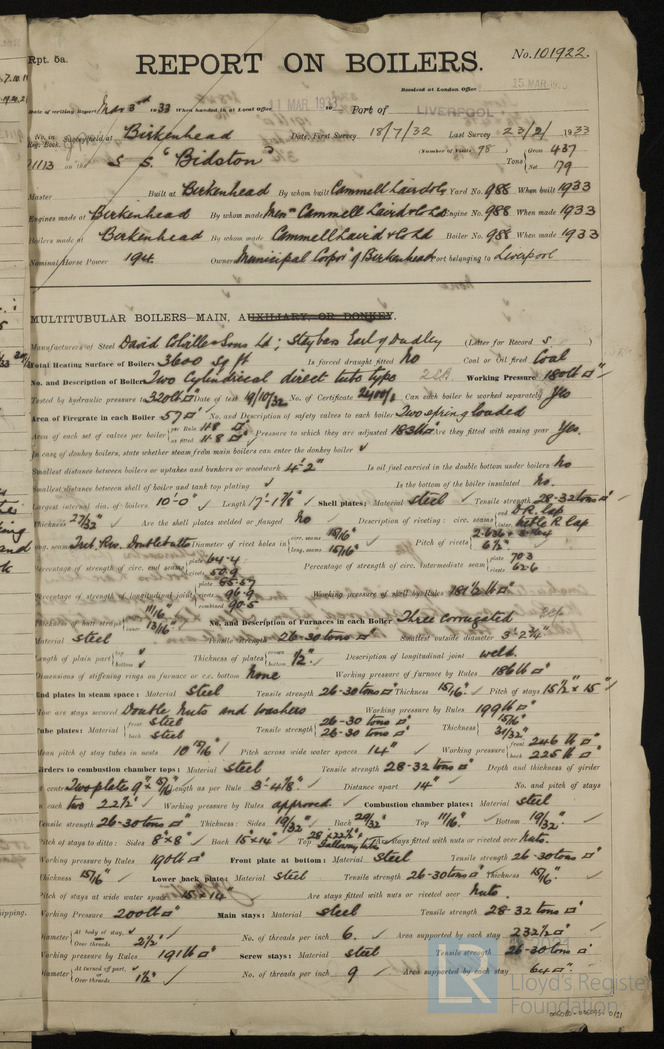 Rpt. 5a.
REPORT ON BOILERS.
No. 101922.
Received at London Office 15 MAR 1933
Date of writing Report Mar 3rd 1933 When handed in at Local Office 11 MAR 1933 Port of LIVERPOOL
No. in Reg. Book. Surveyed at Birkenhead Date, First Survey 18/7/32 Last Survey 23/2/ 1933
11113 on the S S "Bidston" (Number of Visits 98) Tons Gross 437 Net 79
Master Built at Birkenhead By whom built Cammell Laird & Co Yard No. 988 When built 1933
Engines made at Birkenhead By whom made Messrs Cammell Laird & Co Ld Engine No. 988 When made 1933
Boilers made at Birkenhead By whom made Cammell Laird & Co Ld Boiler No. 988 When made 1933
Nominal Horse Power 194 Owners Municipal Corpn of Birkenhead Port belonging to Liverpool
MULTITUBULAR BOILERS—MAIN, AUXILIARY, OR DONKEY.
Manufacturers of Steel David Colville & Sons Ld; Earl of Dudley (Letter for Record S)
Total Heating Surface of Boilers 3600 sq ft Is forced draught fitted No Coal or Oil fired Coal
No. and Description of Boilers Two Cylindrical direct tube type Working Pressure 180 lb □"
Tested by hydraulic pressure to 320 lb □" Date of test 19/10/32 No. of Certificate Can each boiler be worked separately Yes
Area of Firegrate in each Boiler 57 □' No. and Description of safety valves to each boiler Two spring loaded
Area of each set of valves per boiler per Rule 11.8 □" as fitted 11.8 □" Pressure to which they are adjusted 183 lb □" Are they fitted with easing gear Yes.
In case of donkey boilers, state whether steam from main boilers can enter the donkey boiler ✓
Smallest distance between boilers or uptakes and bunkers or woodwork 4'-2" Is oil fuel carried in the double bottom under boilers No
Smallest distance between shell of boiler and tank top plating ✓ Is the bottom of the boiler insulated No.
Largest internal dia. of boilers 10'-0" ✓ Length 17'-1 7/8" ✓ Shell plates: Material steel ✓ Tensile strength 28-32 tons □" ✓
Thickness 27/32" ✓ Are the shell plates welded or flanged No ✓ Description of riveting: circ. seams end D.R. lap inter. R. lap
long. seams Treb. Riv. Double butts Diameter of rivet holes in circ. seams 15/16" long. seams 15/16" Pitch of rivets 6 1/2"
Percentage of strength of circ. end seams plate 64.4 rivets 50.9 Percentage of strength of circ. intermediate seam plate 70.3 rivets 62.6
Percentage of strength of longitudinal joint plate 85.57 rivets 96.9 combined 90.5 Working pressure of shell by Rules 181 1/2 lb □"
Thickness of butt straps outer 11/16" inner 13/16" No. and Description of Furnaces in each Boiler Three corrugated
Material steel Tensile strength 26-30 tons □" Smallest outside diameter 3'-2 3/4"
Length of plain part top ✓ bottom ✓ Thickness of plates crown bottom 1/2" ✓ Description of longitudinal joint weld.
Dimensions of stiffening rings on furnace or c.c. bottom None Working pressure of furnace by Rules 186 lb □"
End plates in steam space: Material steel Tensile strength 26-30 tons □" Thickness 15/16" ✓ Pitch of stays 15 1/2" x 15"
How are stays secured Double Nuts and Washers Working pressure by Rules 199 lb □"
Tube plates: Material front steel back steel Tensile strength 26-30 tons □" 26-30 tons □" Thickness 15/16" 31/32"
Mean pitch of stay tubes in nests 10 15/16" ✓ Pitch across wide water spaces 14" ✓ Working pressure front 246 lb □" back 225 lb □"
Girders to combustion chamber tops: Material steel Tensile strength 28-32 tons □" Depth and thickness of girder
at centre Two plates 9" x 15/16" Length as per Rule 3'-4 7/8" ✓ Distance apart 14" ✓ No. and pitch of stays
in each two 22 1/2" ✓ Working pressure by Rules approved ✓ Combustion chamber plates: Material steel
Tensile strength 26-30 tons □" Thickness: Sides 19/32" ✓ Back 29/32" Top 11/16" ✓ Bottom 19/32" ✓
Pitch of stays to ditto: Sides 8" x 8" ✓ Back 15" x 14" ✓ Top Are stays fitted with nuts or riveted over Nuts.
Working pressure by Rules 190 lb □" Front plate at bottom: Material steel Tensile strength 26-30 tons □"
Thickness 15/16" ✓ Lower back plate: Material steel Tensile strength 26-30 tons □" Thickness 15/16" ✓
Pitch of stays at wide water space 15" x 14" Are stays fitted with nuts or riveted over Nuts.
Working Pressure 200 lb □" Main stays: Material steel Tensile strength 28-32 tons □"
Diameter At body of stay, ✓ or Over threads 2 1/2" ✓ No. of threads per inch 6. ✓ Area supported by each stay 232 1/2 □"
Working pressure by Rules 191 lb □" ✓ Screw stays: Material steel Tensile strength 26-30 tons □"
Diameter At turned off part, ✓ or Over threads 1 1/2" ✓ No. of threads per inch 9 Area supported by each stay 64 □"
© 2021
LR
Lloyd's Register
Foundation